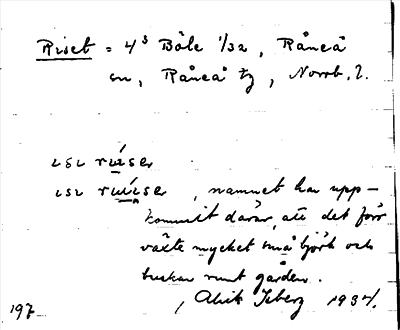 Riset = 4³ Böle 1/32, Råneå
sn, Råneå tg, Norrb. l.
ɩsɩ rúiser
ɩsɩ rúiser, namnet har upp-
kommit därav, att det förr
växte mycket små björk och
buskar runt gården.
197 , Alvik Isberg 1934.